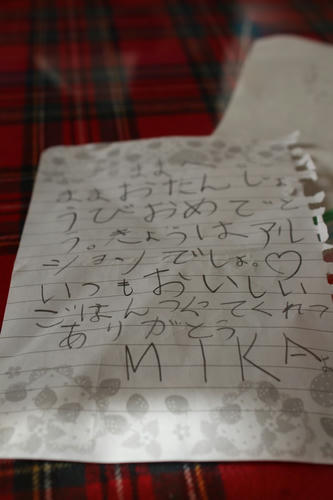 ままへ
ままおたんじょ
うびおめでと
う。きょうはアル
ションでしょ。♡
いつもおいしい
ごはんつくてくれて
ありがとう
MIKA